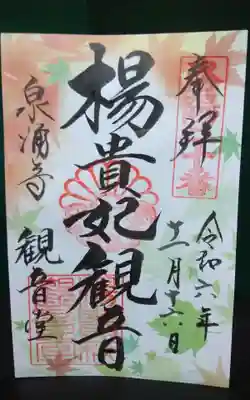 奉拝
令和六年
十二月十六日
楊貴妃観音
泉涌寺
観音堂